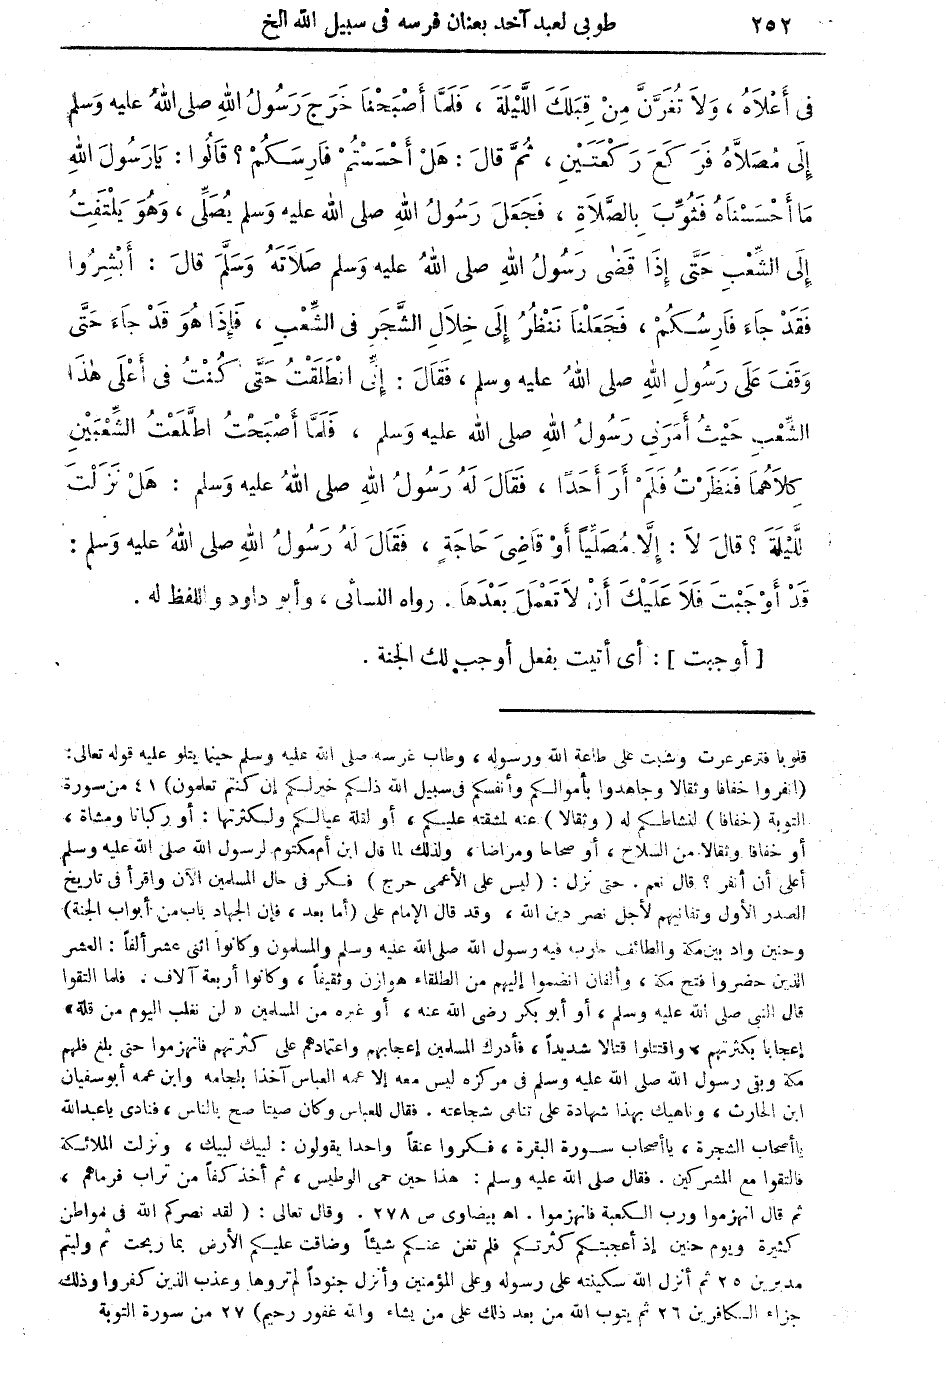 ٢٥٢ طوبى لعبد آخذ بعنان فرسه فى سبيل الله الخ
فى أَعْلَاهُ ، وَلاَ تُغَرَّنَّ مِنْ قِبَلِكَ اللَّيْلَةَ ، فَلَمَّا أَصْبَحْنَا خَرَجَ رَسُولُ اللهِ صلى اللهُ عليه وَسلم
إِلَى مُصَلاَّهُ فَرَكَعَ رَكْعَتَيْنِ ، ثُمَّ قالَ : هَلْ أَحْسَسْتُمْ فَارِسَكُمْ ؟ قَالُوا : يَارَسُولَ اللهِ
مَا أَحْسَسْنَاهُ فَثُوِّبَ بِالصَّلاَةِ ، فَجَعَلَ رَسُولُ اللهِ صلى الله عليه وَسلم يُصَلِّى ، وَهُوَ يَلْتَفِتُ
إِلَى الشِّعْبِ حَتَّى إِذَا قَضَى رَسُولُ اللهِ صلى اللهُ عليه وَسلم صَلاَتَهُ وَسَلَّمَ قالَ : أَبْشِرُوا
فَقَدْ جاءَ فَارِسُكُمْ ، فَجَعَلْنَا نَنْظُرُ إِلَى خِلاَلِ الشَّجَرِ فى الشِّعْبِ ، فَإِذَا هُوَ قَدْ جاءَ حَتَّى
وَقَفَ عَلَى رَسُولِ اللهِ صلى اللهُ عليه وسلم ، فَقَالَ : إِنِّى انْطَلَقْتُ حَتَّى كُنْتُ فى أَعْلَى هٰذَا
الشِّعْبِ حَيْثُ أَمَرَنِى رَسُولُ اللهِ صلى الله عليه وَسلم ، فَلَمَّا أَصْبَحْتُ اطَّلَعْتُ الشِّعْبَيْنِ
كِلاَهُمَا فَنَظَرْتُ فَلَمْ أَرَ أَحَدًا ، فَقَالَ لَهُ رَسُولُ اللهِ صلى اللهُ عليه وَسلم : هَلْ نَزَلْتَ
لَّيْلَةَ ؟ قالَ لاَ : إِلَّا مُصَلِّياً أَوْ قَاضِىَ حَاجَةٍ ، فَقَالَ لَهُ رَسُولُ اللهِ صلى اللهُ عليه وَسلم :
قَدْ أَوْجَبْتَ فَلاَ عَلَيْكَ أَنْ لاَ تَعْمَلَ بَعْدَهَا . رواه النسائى ، وأبو داود واللفظ له .
[ أوجبت ] : أى أتيت بفعل أوجب لك الجنة .
قلوبا فترعرعت وشبت على طاعة الله ورسوله ، وطاب غرسه صلى الله عليه وسلم حينما يتلو عليه قوله تعالى :
(انفروا خفافا وثقالا وجاهدوا بأموالكم وأنفسكم فى سبيل الله ذلكم خير لكم إن كنتم تعلمون) ٤١ من سورة
التوبة (خفافا) لنشاطكم له (وثقالا) عنه لمشقته عليكم ، أو لقلة عيالكم ولكثرتها : أو ركبانا ومشاة ،
أو خفافا وثقالا من السلاح ، أو صحاحا ومراضا ، ولذلك لما قال ابن أم مكتوم لرسول الله صلى الله عليه وسلم
أعلى أن أنفر ؟ قال نعم . حتى نزل : (ليس على الأعمى حرج) فكر فى حال المسلمين الآن واقرأ فى تاريخ
الصدر الأول وتفانيهم لأجل نصر دين الله ، وقد قال الإمام على (أما بعد ، فإن الجهاد باب من أبواب الجنة)
وحنين واد بين مكة والطائف حارب فيه رسول الله صلى الله عليه وسلم والمسلمون وكانوا اثنى عشر ألفاً : العشر
الذين حضروا فتح مكة ، وألفان انضموا إليهم من الطلقاء هوازن وثقيفاً ، وكانوا أربعة آلاف . فلما التقوا
قال النبى صلى الله عليه وسلم ، أو أبو بكر رضى الله عنه ، أو غيره من المسلمين « لن نغلب اليوم من قلة »
إعجابا بكثرتهم ، واقتتلوا قتالا شديداً ، فأدرك المسلمين إعجابهم واعتمادهم على كثرتهم فانهزموا حتى بلغ فلهم
مكة وبقى رسول الله صلى الله عليه وسلم فى مركزه ليس معه إلا عمه العباس آخذا بلجامه وابن عمه أبو سفيان
ابن الحارث ، وناهيك بهذا شهادة على تناهى شجاعته . فقال للعباس وكان صيتا صح بالناس ، فنادى يا عبد الله
يا أصحاب الشجرة ، يا أصحاب سورة البقرة ، فكروا عنقاً واحدا يقولون : لبيك لبيك ، ونزلت الملائكة
فالتقوا مع المشركين . فقال صلى الله عليه وسلم : هذا حين حمى الوطيس ، ثم أخذ كفاً من تراب فرماهم ،
ثم قال انهزموا ورب الكعبة فانهزموا . اهـ بيضاوى ص ٢٧٨ . وقال تعالى : ( لقد نصركم الله فى مواطن
كثيرة ويوم حنين إذ أعجبتكم كثرتكم فلم تغن عنكم شيئاً وضاقت عليكم الأرض بما رحبت ثم وليتم
مدبرين ٢٥ ثم أنزل الله سكينته على رسوله وعلى المؤمنين وأنزل جنوداً لم تروها وعذب الذين كفروا وذلك
جزاء الكافرين ٢٦ ثم يتوب الله من بعد ذلك على من يشاء والله غفور رحيم) ٢٧ من سورة التوبة